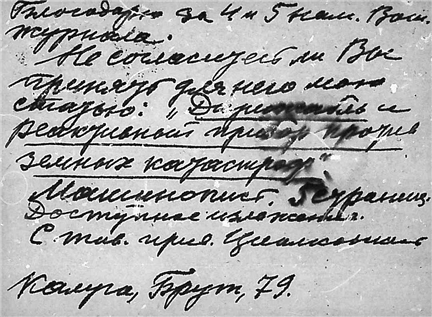 Благодарю за 4 и 5 нам. Ваш.
журнала.
Не согласитесь ли Вы
принять для него мою
статью: „Дирижабль и
реактивный прибор против
земных катастроф“.
Машинопист. 5 страниц.
Доступное изложение.
С тов. прив. Циолковский
Калуга, Брут, 79.